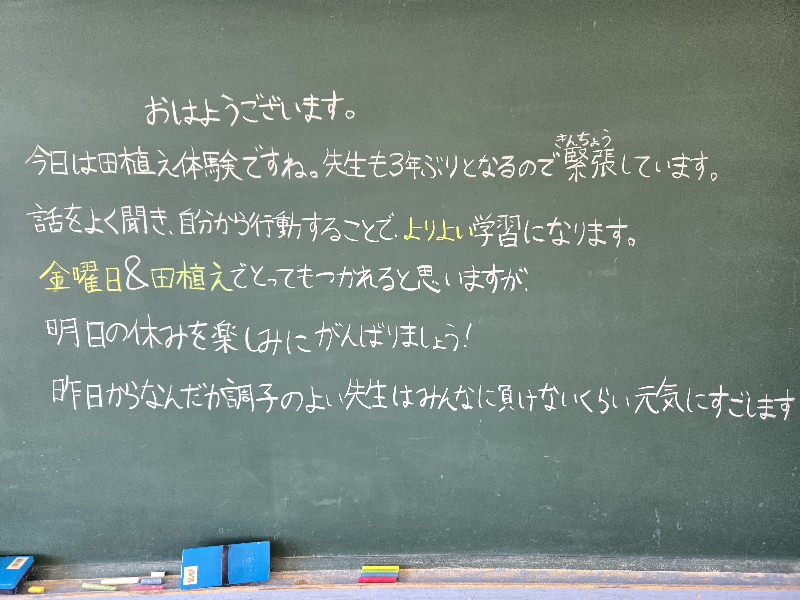 おはようございます。
今日は田植え体験ですね。先生も3年ぶりとなるので緊張しています。
きんちょう
話をよく聞き、自分から行動することで、よりよい学習になります。
金曜日&田植えでとってもつかれると思いますが、
明日の休みを楽しみにがんばりましょう!
昨日からなんだか調子のよい先生はみんなに負けないくらい元気にすごします